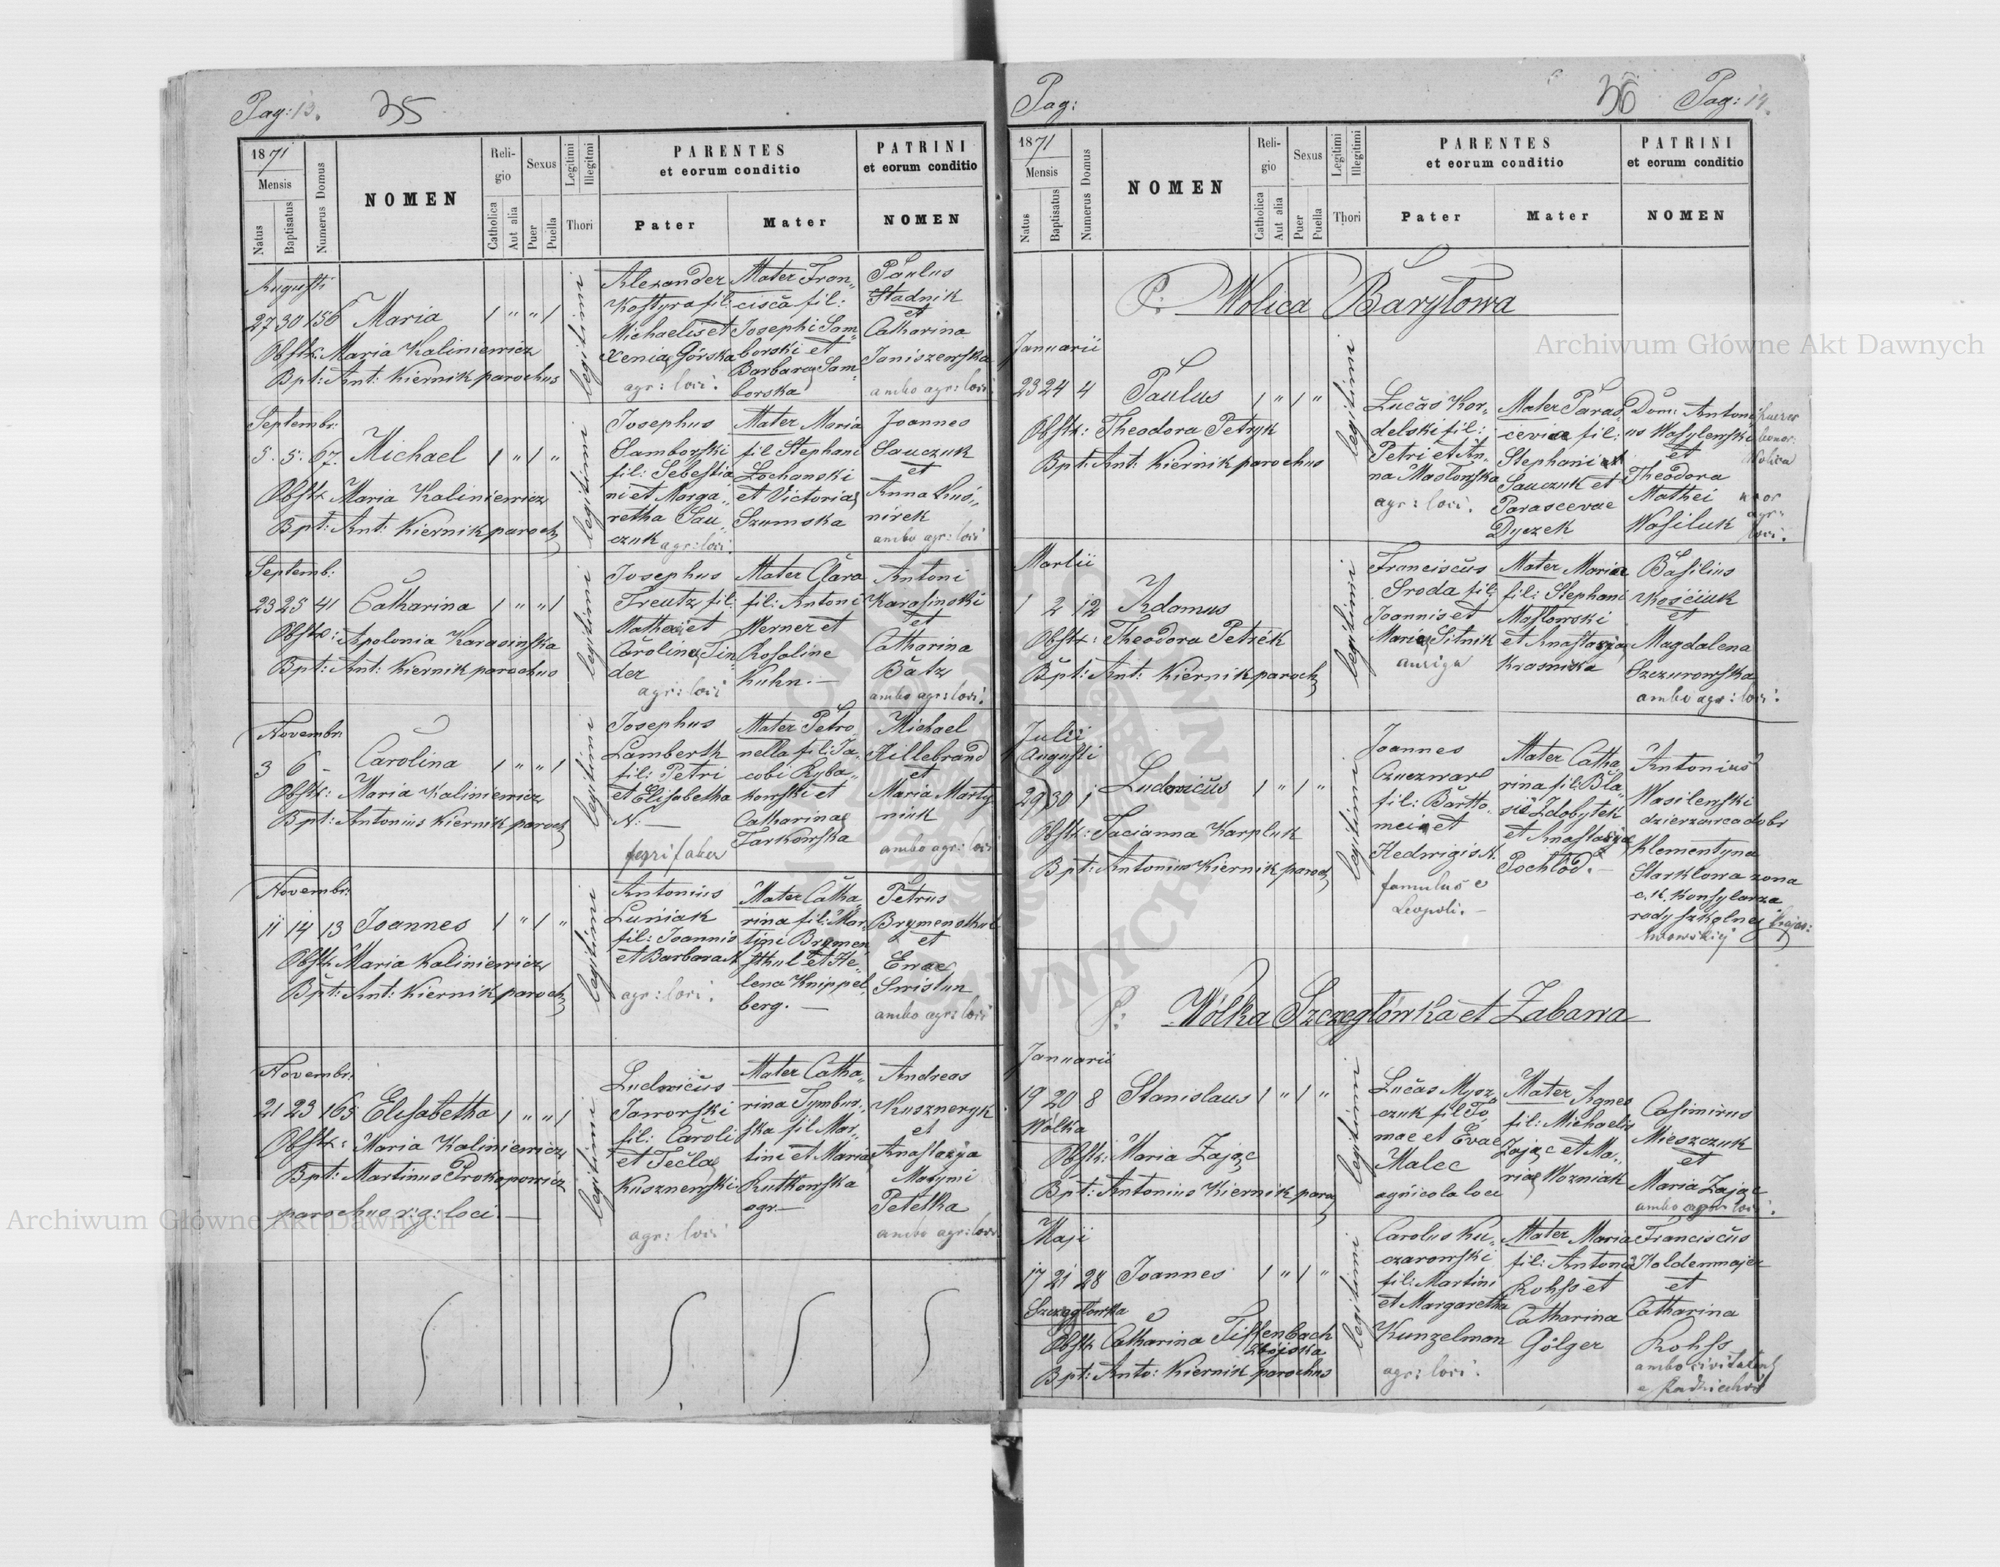 Pag: 13. 35
1871
Mensis
Natus
Baptisatus
Numerus Domus
NOMEN
Reli-
gio
Catholica
Aut alia
Sexus
Puer
Puella
Legitimi
Illegitmi
Thori
PARENTES
et eorum conditio
Pater
Mater
PATRINI
et eorum conditio
NOMEN
Augusti
27 30 156 Maria 1 " " 1
Obstx: Maria Kaliniewicz
Bpt: Ant: Kiernik parochus
legitimi
Alexander
Kostyra fil:
Michaelis et
Xenia Górska
agr: loci.
Mater Fran-
cisca fil:
Josephi Sam-
borski et
Barbara Sam-
borska
Paulus
Stadnik
et
Catharina
Janiszewska
ambo agr: loci
Septembr:
5. 5. 67. Michael 1 " 1 "
Obstx Maria Kaliniewicz
Bpt: Ant: Kiernik paroch
legitimi
Josephus
Samborski
fil: Sebestia
ni et Marga-
retha Sau-
czuk agr: loci.
Mater Maria
fil Stephani
Lochanski
et Victoria
Szumska
Joannes
Sauczuk
et
Anna Kuś-
nirek
ambo agr: loci
Septemb:
23 25 41 Catharina 1 " " 1
Obstx: Apolonia Karasinska
Bpt: Ant: Kiernik parochus
legitimi
Josephus
Treutz fil:
Mathei et
Carolina Tin
der
agr: loci
Mater Clara
fil: Antoni
Werner et
Rosaline
Kuhn. —
Antoni
Karasinski
et
Catharina
Bätz
ambo agr: loci.
Novembr:
3 6 - Carolina 1 " " 1
Obstx: Maria Kaliniewicz
Bpt: Antonius Kiernik paroch
legitimi
Josephus
Lambertk
fil: Petri
et Elisabetha
N: —
ferrifaber
Mater Petro-
nella fil: Ja-
cobi Ryba-
kowski et
Catharina
Tarkowska
Michael
Hillebrand
et
Maria Marty
niuk
ambo agr: loci
Novembr:
11 14 13 Joannes 1 " 1 "
Obstx Maria Kaliniewicz
Bpt: Ant: Kiernik paroch
legitimi
Antonius
Luniak
fil: Joannis
et Barbara N
agr: loci.
Mater Catha-
rina fil: Mar-
tini Brymen
sthul et He-
lena Knippel
berg. —
Petrus
Brymensthul
et
Ewae
Swistun
ambo agr: loci
Novembr:
21 23 165 Elisabetha 1 " " 1
Obstx: Maria Kaliniewicz
Bpt: Martinus Prokopowicz
parochus r: g: loci. —
legitimi
Ludwicus
Jaworski
fil: Caroli
et Tecla
Kusznerski
agr: loci
Mater Catha-
rina Tymbus-
ska fil Mar-
tini et Maria
Rutkowska
agr —
Andreas
Kuszneryk
et
Anastazya
Maxymi
Petelka
ambo agr: loci
Pag: 36 Pag: 14.
1871
Mensis
Natus
Baptisatus
Numerus Domus
NOMEN
Reli-
gio
Catholica
Aut alia
Sexus
Puer
Puella
Legitimi
Illegitimi
Thori
PARENTES
et eorum conditio
Pater
Mater
PATRINI
et eorum conditio
NOMEN
P: Wolica Baryłowa
Januarii
23 24 4 Paulus 1 " 1 "
Obstx: Theodora Petryk
Bpt: Ant: Kiernik parochus
legitimi
Lucas Kor-
delski fil:
Petri et An-
na Masłowska
agr: loci.
Mater Paras-
cevia fil:
Stephani
Sauczuk et
Parascevae
Dyczek
Dom: Antoni
us Wasylewski
et
Theodora
Mathei
Wasiluk
bonor:
Wolica
uxor
agr:
loci.
Martii
1 2 12 Adamus
Obstx: Theodora Petrek
Bpt: Ant: Kiernik paroch
legitimi
Franciscus
Sroda fil:
Joannis et
Maria Sitnik
auriga
Mater Maria
fil: Stephani
Masłowski
et Anastazia
Krasnicka
Basilius
Kościuk
et
Magdalena
Szczurowska
ambo agr: loci.
Julii
Augusti
29 30 1 Ludovicus 1 " 1 "
Obstx: Tacianna Karpluk
Bpt: Antonius Kiernik paroch
legitimi
Joannes
Czuczwar
fil: Bartło-
mei et
Hedwigis N.
famulus e
Leopoli. —
Mater Catha
rina fil: Bla-
sii Zdobytek
et Anastazia
Pochłód. —
Antonius
Wasilewski
dzierzawca dobr
Klementyna
Starklowa zona
c. k. Konsylarza
rady szkolnej krajo:
lwowskiej
P: Wólka Szczegłówka et Zabawa
Januarii
19 20 8 Stanislaus 1 " 1 "
Wólka
Obstx: Maria Zając
Bpt: Antonius Kiernik paroch
legitimi
Lucas Mysz-
czuk fil To
mae et Evae
Malec
agricola loci
Mater Agnes
fil: Michaelis
Zając et Ma-
ria Wozniak
Casimirus
Mieszczuk
et
Maria Zając
ambo agr: loci.
Maji
17 21 28 Joannes 1 " 1 "
Szczegłowka
Obstx Catharina Tiffenbach
Zbojska
Bpt: Anto: Kiernik parochus
legitimi
Carolus Ku-
czarowski
fil: Martini
et Margaretha
Kunzelman
agr: loci.
Mater Maria
fil: Antoni
Rohss et
Catharina
Gölger
Franciscus
Holdenmajer
et
Catharina
Rohss
ambo civitatens
e Radziechow
Archiwum Główne Akt Dawnych
Archiwum Główne Akt Dawnych